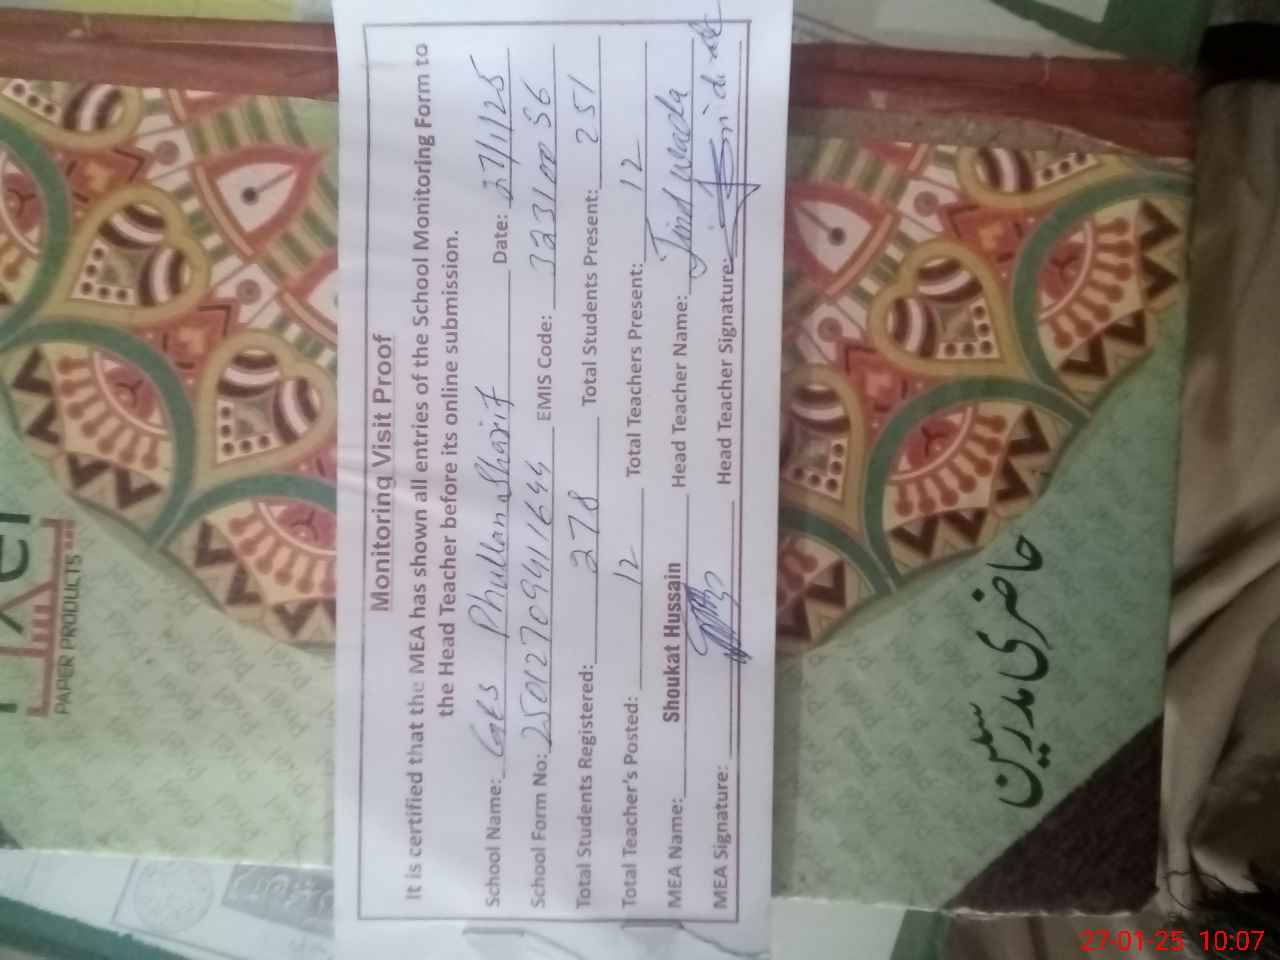 Monitoring Visit Prof
It is certified that the MEA has shown all entries of the School Monitoring Form to
the Head Teacher before its online submission.
School Name: GES Phullan Sharif Date: 27/1/25
School Form No: 250127094411644 EMIS Code: 32310056
Total Students Registered: 278 Total Students Present: 251
Total Teacher's Posted: 12 Total Teachers Present: 12
MEA Name: Shoukat Hussain Head Teacher Name:
MEA Signature: Head Teacher Signature:
PAPER PRODUCTS
حاضری مدرسین
27-01-25 10:07